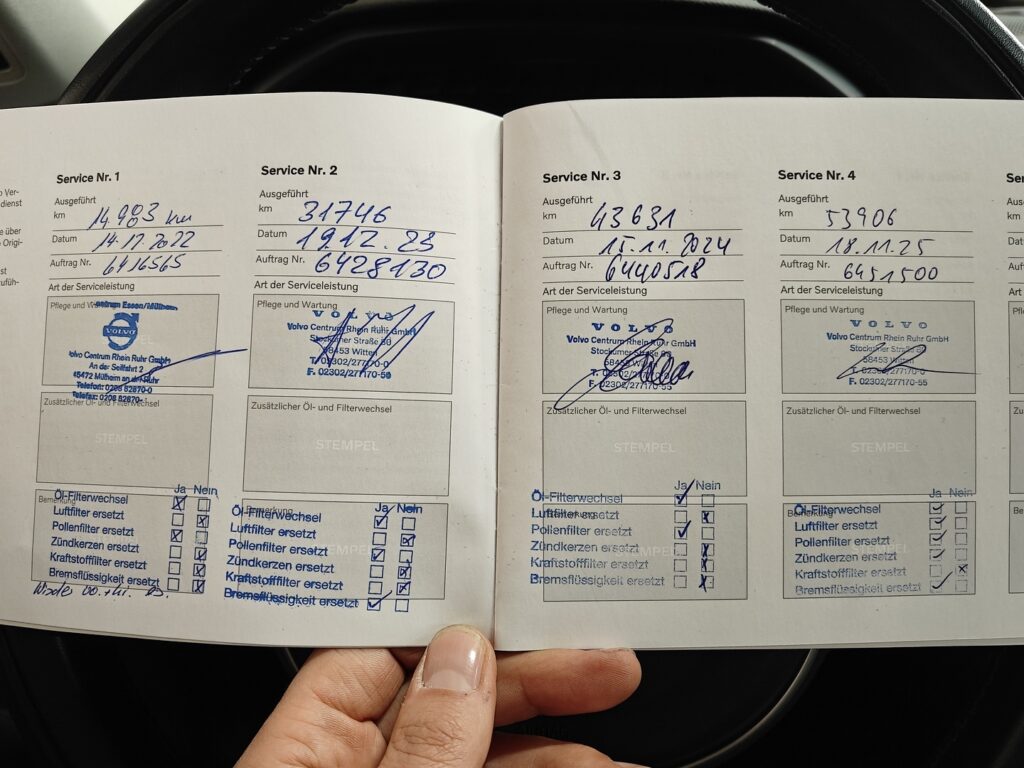 Service Nr. 1
Ausgeführt
km 14.983 km
Datum 14.12.2022
Auftrag Nr. 6416565
Art der Serviceleistung
Pflege und Wartung
Essen/Mülheim
VOLVO
Volvo Centrum Rhein Ruhr GmbH
An der Seilfahrt 2
45472 Mülheim an der Ruhr
Telefon: 0208 82870-0
Telefax: 0208 82870-
Zusätzlicher Öl- und Filterwechsel
STEMPEL
Bemerkung
Ja Nein
Öl-Filterwechsel
Luftfilter ersetzt
Pollenfilter ersetzt
Zündkerzen ersetzt
Kraftstofffilter ersetzt
Bremsflüssigkeit ersetzt
Service Nr. 2
Ausgeführt
km 31746
Datum 19.12.23
Auftrag Nr. 6428130
Art der Serviceleistung
Pflege und Wartung
VOLVO
Volvo Centrum Rhein Ruhr GmbH
Stockumer Straße
58453 Witten
T. 02302/277170-0
F. 02302/277170-55
Zusätzlicher Öl- und Filterwechsel
STEMPEL
Bemerkung
Ja Nein
Öl-Filterwechsel
Luftfilter ersetzt
Pollenfilter ersetzt
Zündkerzen ersetzt
Kraftstofffilter ersetzt
Bremsflüssigkeit ersetzt
Service Nr. 3
Ausgeführt
km 43631
Datum 15.11.2024
Auftrag Nr. 6440518
Art der Serviceleistung
Pflege und Wartung
VOLVO
Volvo Centrum Rhein Ruhr GmbH
Stockumer Straße
58453 Witten
T. 02302/277170-0
F. 02302/277170-55
Zusätzlicher Öl- und Filterwechsel
STEMPEL
Ja Nein
Öl-Filterwechsel
Luftfilter ersetzt
Pollenfilter ersetzt
Zündkerzen ersetzt
Kraftstofffilter ersetzt
Bremsflüssigkeit ersetzt
STEMPEL
Service Nr. 4
Ausgeführt
km 53906
Datum 18.11.25
Auftrag Nr. 6451500
Art der Serviceleistung
Pflege und Wartung
VOLVO
Volvo Centrum Rhein Ruhr GmbH
Stockumer Straße
58453 Witten
T. 02302/277170-0
F. 02302/277170-55
Zusätzlicher Öl- und Filterwechsel
STEMPEL
Bemerkung
Ja Nein
Öl-Filterwechsel
Luftfilter ersetzt
Pollenfilter ersetzt
Zündkerzen ersetzt
Kraftstofffilter ersetzt
Bremsflüssigkeit ersetzt